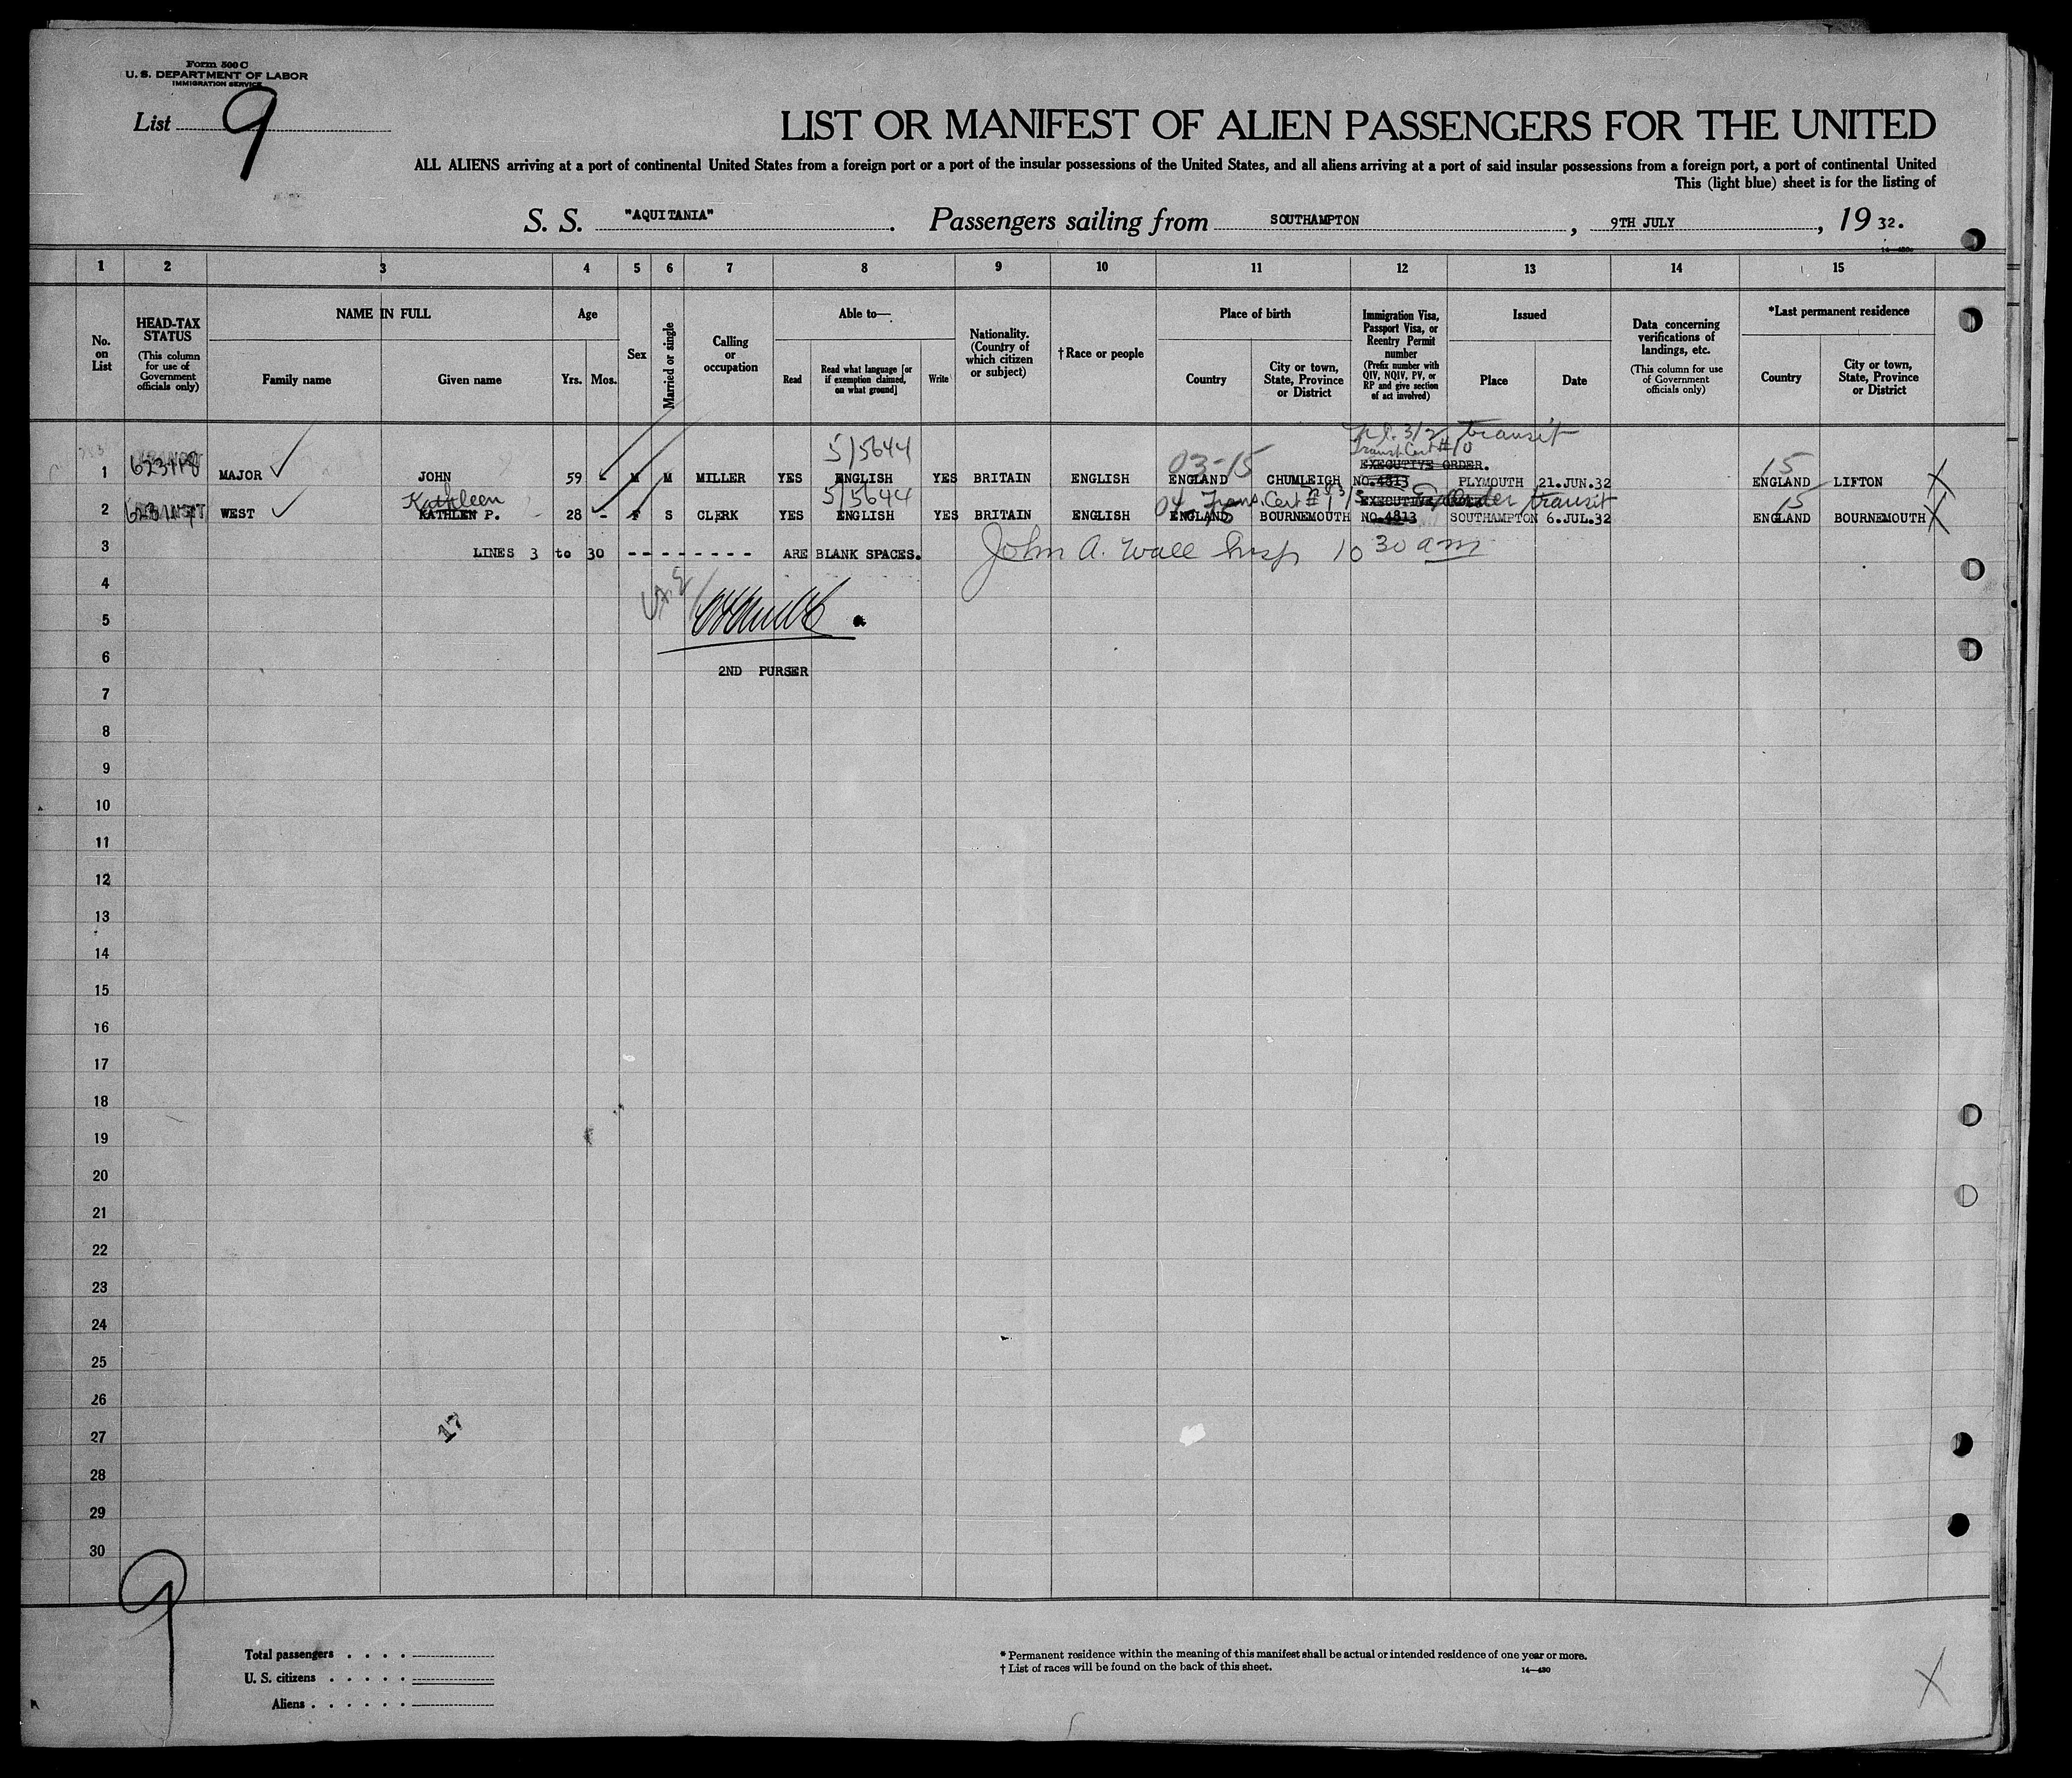 Form 500 C
U. S. DEPARTMENT OF LABOR
IMMIGRATION SERVICE
List 9
LIST OR MANIFEST OF ALIEN PASSENGERS FOR THE UNITED
ALL ALIENS arriving at a port of continental United States from a foreign port or a port of the insular possessions of the United States, and all aliens arriving at a port of said insular possessions from a foreign port, a port of continental United
This (light blue) sheet is for the listing of
S. S. "AQUITANIA". Passengers sailing from SOUTHAMPTON, 9TH JULY, 19 32.
1 2 3 4 5 6 7 8 9 10 11 12 13 14 15
No. on List
HEAD-TAX STATUS (This column for use of Government officials only)
NAME IN FULL
Family name
Given name
Age
Yrs. Mos.
Sex
Married or single
Calling or occupation
Able to—
Read
Read what language [or if exemption claimed, on what ground]
Write
Nationality. (Country of which citizen or subject)
†Race or people
Place of birth
Country
City or town, State, Province or District
Immigration Visa, Passport Visa, or Reentry Permit number (Prefix number with QIV, NQIV, PV, or RP and give section of act involved)
Issued
Place
Date
Data concerning verifications of landings, etc. (This column for use of Government officials only)
*Last permanent residence
Country
City or town, State, Province or District
5/5644 3/2 transit
03-15 Transt Cert #10 15
EXECUTIVE ORDER.
1 623118 MAJOR JOHN 59 M M MILLER YES ENGLISH YES BRITAIN ENGLISH ENGLAND CHUMLEIGH NO.4813 PLYMOUTH 21.JUN.32 ENGLAND LIFTON X
Kathleen 5/5644 04 Trans. Cert # Ex Order transit 15
EXECUTIVE
2 WEST KATHLEN P. 28 - F S CLERK YES ENGLISH YES BRITAIN ENGLISH ENGLAND BOURNEMOUTH NO.4813 SOUTHAMPTON 6.JUL.32 ENGLAND BOURNEMOUTH X
3 LINES 3 to 30 - - - - - - - - ARE BLANK SPACES. John A. Wall Insp 10 30 am
4
5
6
2ND PURSER
7
8
9
10
11
12
13
14
15
16
17
18
19
20
21
22
23
24
25
26
17
27
28
29
30
9
Total passengers . . . .
U. S. citizens . . . . .
Aliens . . . . . .
* Permanent residence within the meaning of this manifest shall be actual or intended residence of one year or more.
† List of races will be found on the back of this sheet.
14—430
X